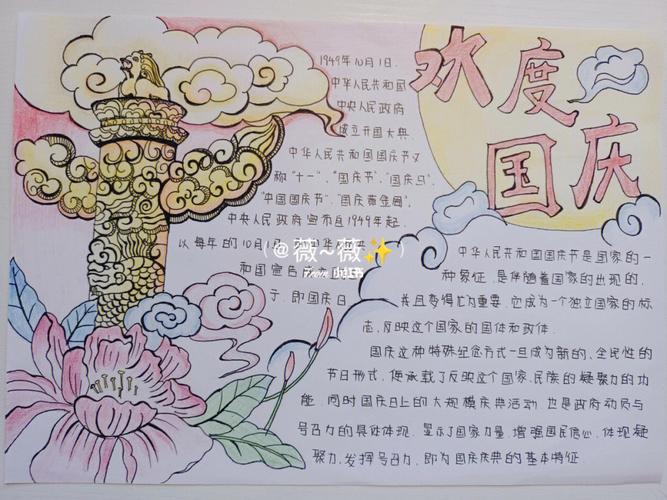 欢度
国庆
1949年10月1日.
中华人民共和国
中央人民政府
成立开国大典.
中华人民共和国国庆节又
称"十一"、"国庆节"、"国庆日"、
"中国国庆节"、"国庆黄金周".
中央人民政府宣布自1949年起.
以每年的10月1日
和国宣告
即国庆日
(@薇~薇✨)
中华人民共和国国庆节是国家的一
种象征,是伴随着国家的出现的,
并且变得尤为重要.它成为一个独立国家的标
志,反映这个国家的国体和政体.
国庆这种特殊纪念方式一旦成为新的、全民性的
节日形式,便承载了反映这个国家、民族的凝聚力的功
能,同时国庆日上的大规模庆典活动,也是政府动员与
号召力的具体体现.显示了国家力量、增强国民信心,体现凝
聚力,发挥号召力,即为国庆庆典的基本特征.